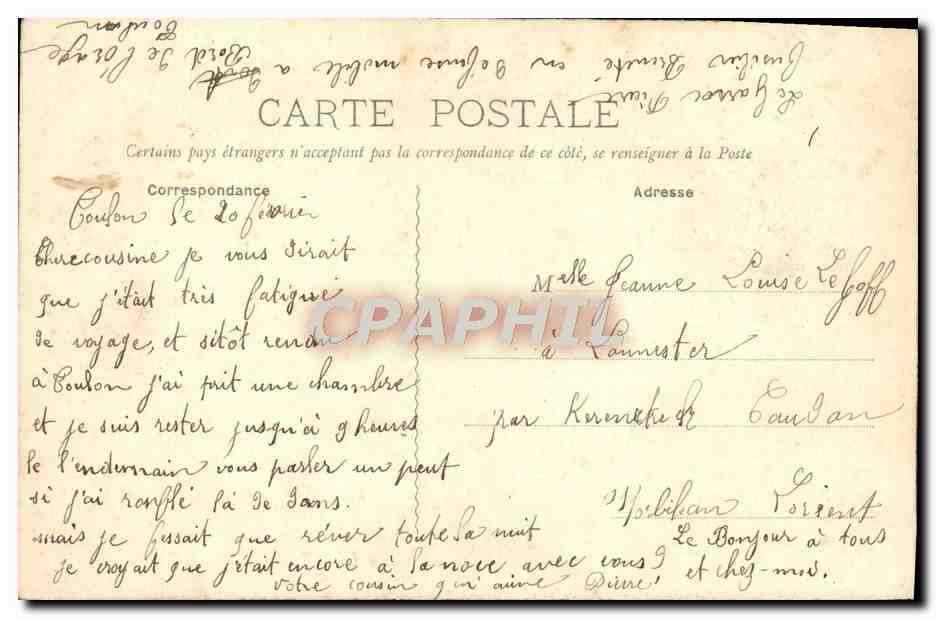 Le Garrec Pierre
fusilier Breveté en défense mobile a
Bord de l'orage
Toulon
CARTE POSTALE
Certains pays étrangers n'acceptant pas la correspondance de ce côté, se renseigner à la Poste
Correspondance
Toulon le 20 février
Chere cousine je vous dirait
que j'était très fatigué
de voyage, et sitôt rendu
à Toulon j'ai prit une chambre
et je suis rester jusqu'à 9 heures
le l'endemain vous parler un peut
si j'ai ronflé là de dans.
mais je fessait que réver toute la nuit
je croyait que j'etait encore à la noce avec vous
votre cousin qui aime Pierre
Adresse
Melle Jeanne Louise Le Goff
à Lannester
par Caudan
Morbihan Lorient
Le Bonjour à tous
et chez-moi.
CPAPHIL